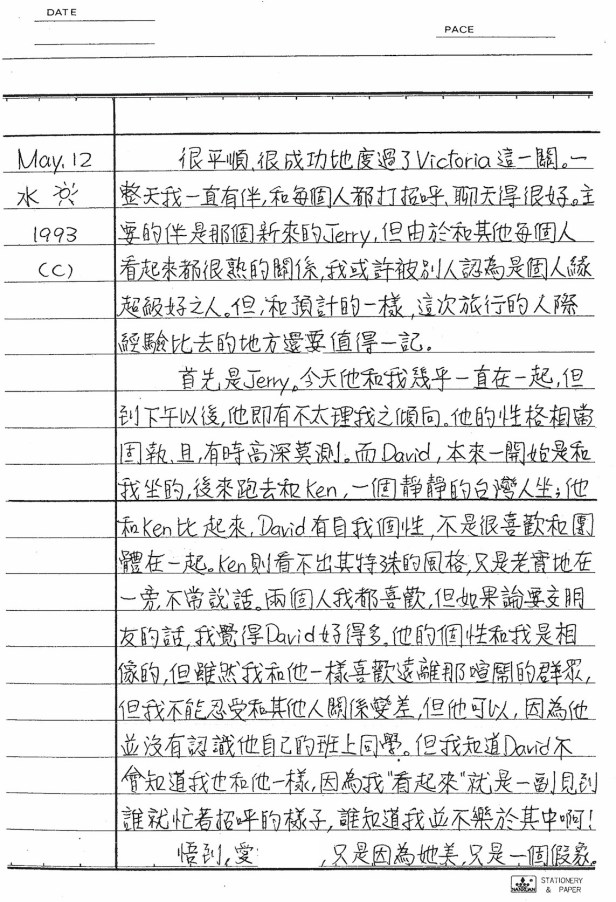 DATE
PACE
May. 12
很平順、很成功地度過了Victoria這一關。一
水
整天我一直有伴,和每個人都打招呼、聊天得很好。主
1993
要的伴是那個新來的Jerry,但由於和其他每個人
(C)
看起來都很熟的關係,我或許被別人認為是個人緣
超級好之人。但,和預計的一樣,這次旅行的人際
經驗比去的地方還要值得一記.
首先是Jerry。今天他和我幾乎一直在一起,但
到下午以後,他即有不太理我之傾向。他的性格相當
固執、且,有時高深莫測。而David,本來一開始是和
我坐的,後來跑去和Ken,一個靜靜的台灣人坐;他
和Ken比起來,David有自我個性,不是很喜歡和團
體在一起。Ken則看不出其特殊的風格,只是老實地在
一旁,不常說話。兩個人我都喜歡,但如果論要交朋
友的話,我覺得David好得多。他的個性和我是相
像的,但雖然我和他一樣喜歡遠離那喧鬧的群眾,
但我不能忍受和其他人關係變差,但他可以,因為他
並沒有認識他自己的班上同學。但我知道David不
會知道我也和他一樣,因為我"看起來"就是一副見到
誰就忙著招呼的樣子,誰知道我並不樂於其中啊!
悟到,愛 ,只是因為她美,只是一個假象。
NANKUAN STATIONERY
& PAPER